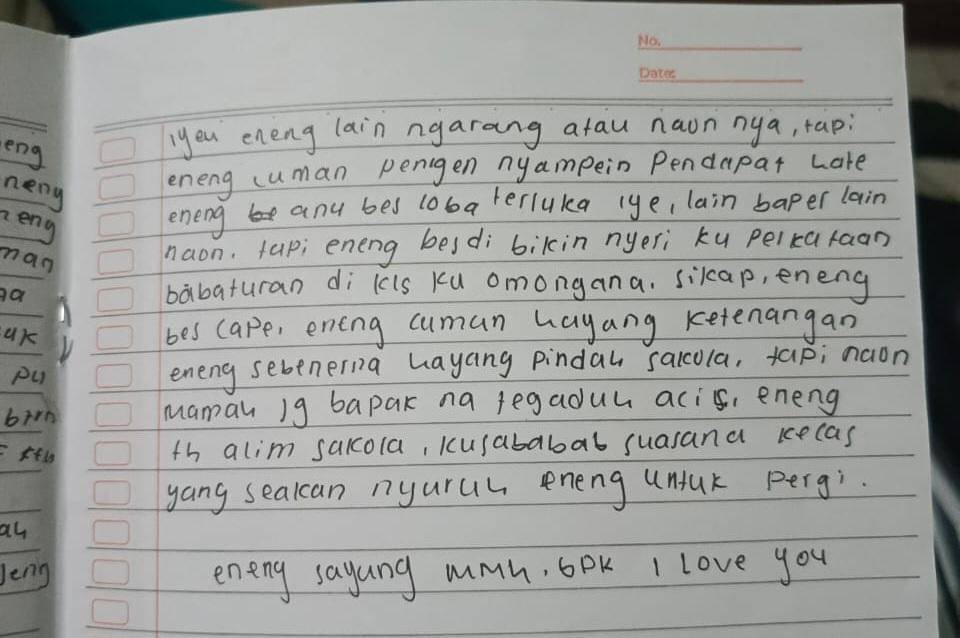 No.
Date:
iyeu eneng lain ngarang atau naon nya, tapi
eneng cuman pengen nyampein Pendapat hate
eneng anu bes loba terluka iye, lain baper lain
naon. tapi eneng bes di bikin nyeri ku perkataan
babaturan di kls ku omongana. sikap, eneng
bes cape, eneng cuman hayang ketenangan
eneng sebenerna hayang pindah sakola, tapi naon
mamah jg bapak na tegaduh acis, eneng
th alim sakola, kusababab suasana kelas
yang seakan nyuruh eneng untuk pergi.
eneng sayang mmh, bpk I Love you
eng
neng
neng
man
na
uk
pu
ah